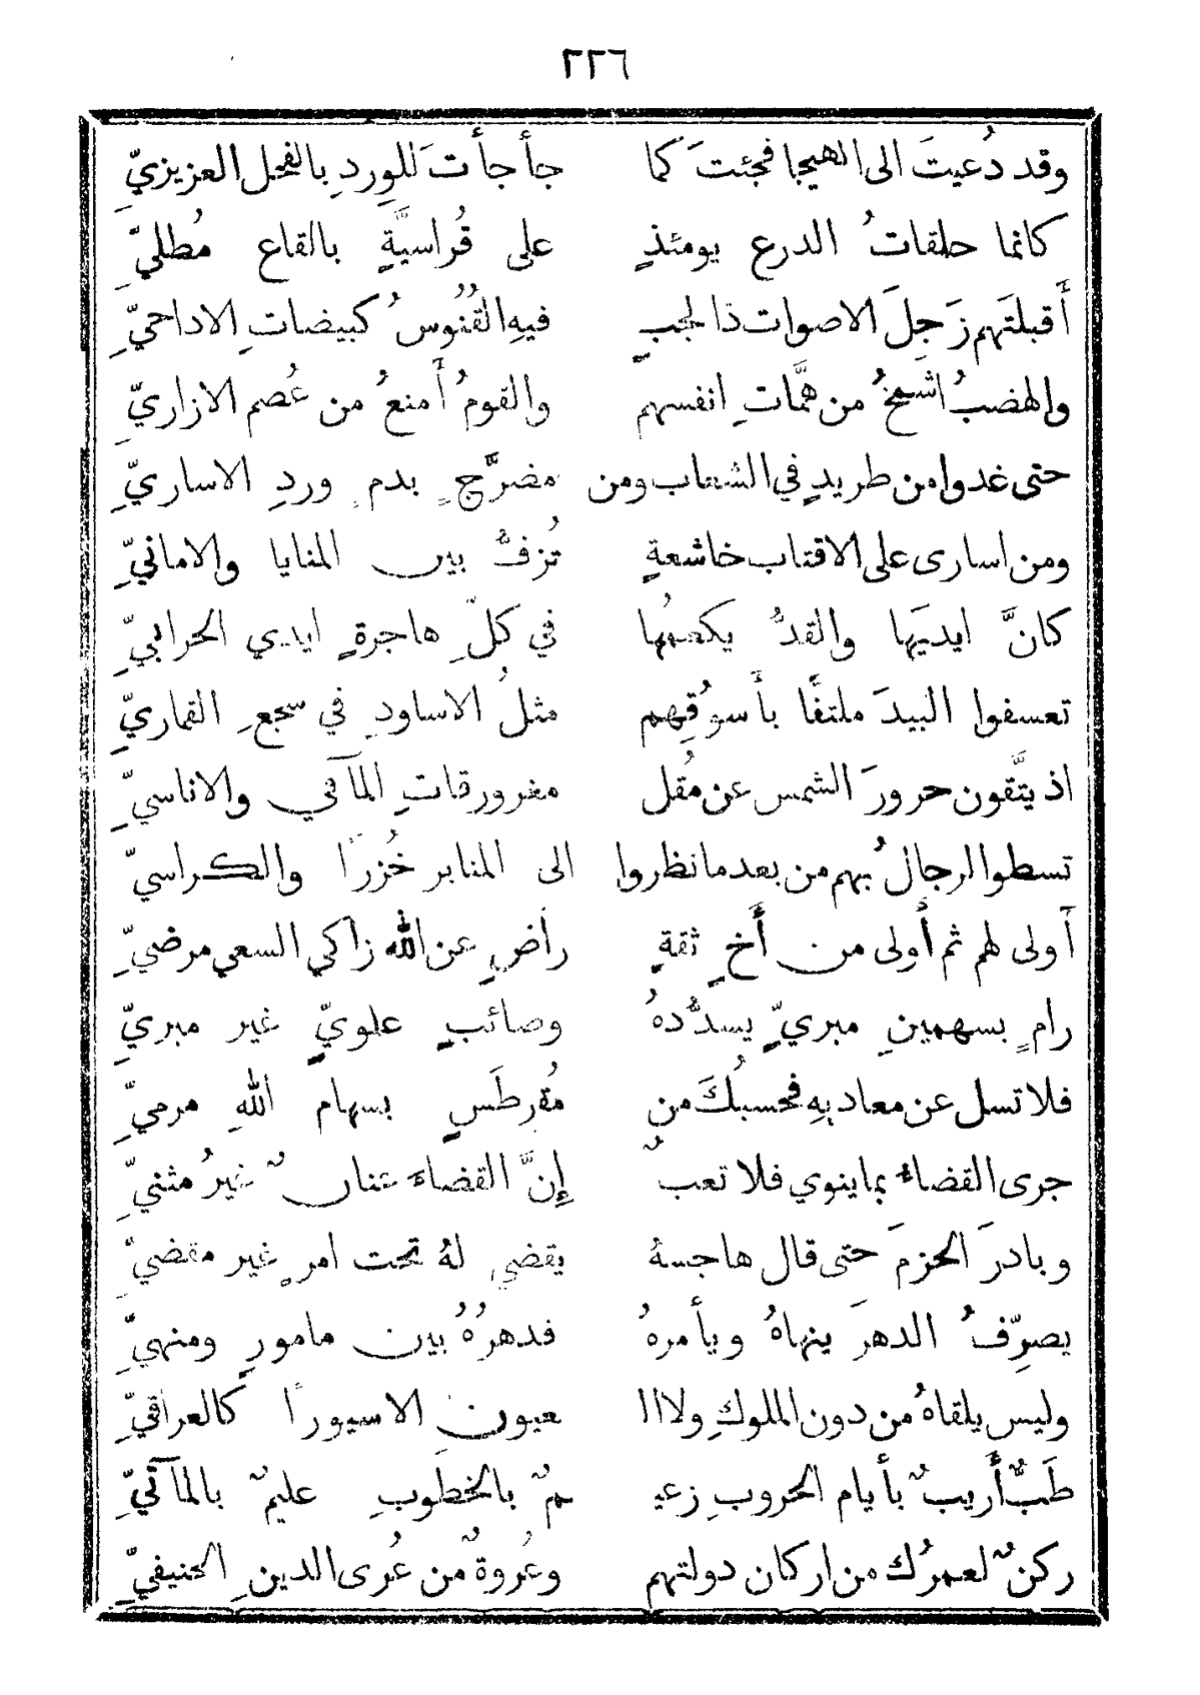 ٢٢٦
وقد دُعيتَ الى الهيجا فجئتَ كما جأجأتَ للوِردِ بالفحل العزيزيِّ
كانما حلقاتُ الدرع يومئذٍ على قُراسيَّةٍ بالقاع مُطليِّ
أَقبلتَهم زَجِلَ الاصوات ذا لجبٍ فيهِ القُنُوسُ كبيضاتِ الاداحيِّ
والهضبُ اشمخُ من همَّاتِ انفسهم والقومُ أَمنعُ من عُصم الازاريِّ
حتى غدوا من طريدٍ في الشعاب ومن مضرَّجٍ بدمٍ وردِ الاساريِّ
ومن اسارى على الاقتاب خاشعةٍ تُزفُّ بين المنايا والامانيِّ
كانَّ ايديَها والقدُّ يكعمُها في كلِّ هاجرةٍ ايدي الحرابيِّ
تعسفوا البيدَ ملتفًا بأَسوُقِهم مثلُ الاساودِ في سجعِ القماريِّ
اذ يتَّقون حرورَ الشمس عن مُقل مغرورقاتِ المآقي والاناسيِّ
تسطوا الرجالُ بهم من بعد ما نظروا الى المنابر خُزرًا والكراسيِّ
أَولى لهم ثم أُولى من أَخٍ ثقةٍ راضٍ عن الله زاكي السعي مرضيِّ
رامٍ بسهمينِ مبريٍّ يسدُّدهُ وصائبٍ علويٍّ غير مبريِّ
فلا تسل عن معاديهِ فحسبُكَ من مُقرطَسٍ بسهام اللهِ مرميِّ
جرى القضاءُ بما ينوي فلا تعبٌ إِنَّ القضاءَ عنانٌ غيرُ مثنيِّ
وبادرَ الحزمَ حتى قال هاجسهُ يقضي لهُ تحت امرٍ غير مقضيِّ
يصرِّفُ الدهرَ ينهاهُ ويأمرهُ فدهرُهُ بين مامورٍ ومنهيِّ
وليس يلقاهُ من دون الملوكِ ولا ال عيون الا سيورًا كالعراقيِّ
طَبٌّ أَريبٌ بأَيام الحروبِ زعيـ ـمٌ بالخطَوبِ عليمٌ بالمآتيِّ
ركنٌ لعمرُك من اركان دولتهم وعُروةٌ من عُرى الدينِ الحنيفيِّ